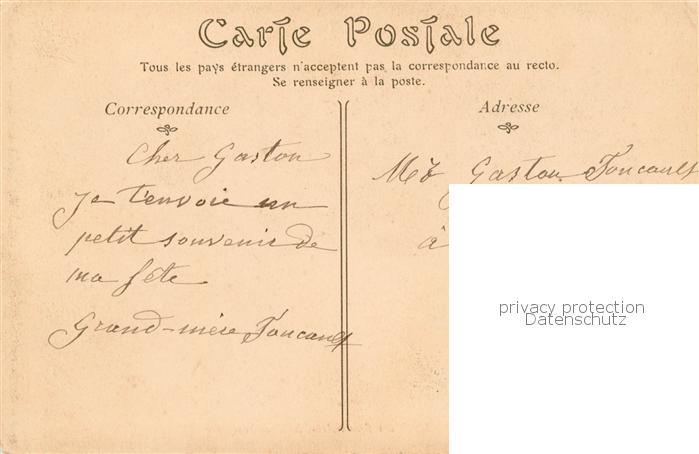 Carte Postale
Tous les pays étrangers n'acceptent pas la correspondance au recto.
Se renseigner à la poste.
Correspondance
Adresse
Cher Gaston
je t'envoie un
petit souvenir de
ma fête
Grand-mère Foucault
Gaston Foucault
à
privacy protection
Datenschutz